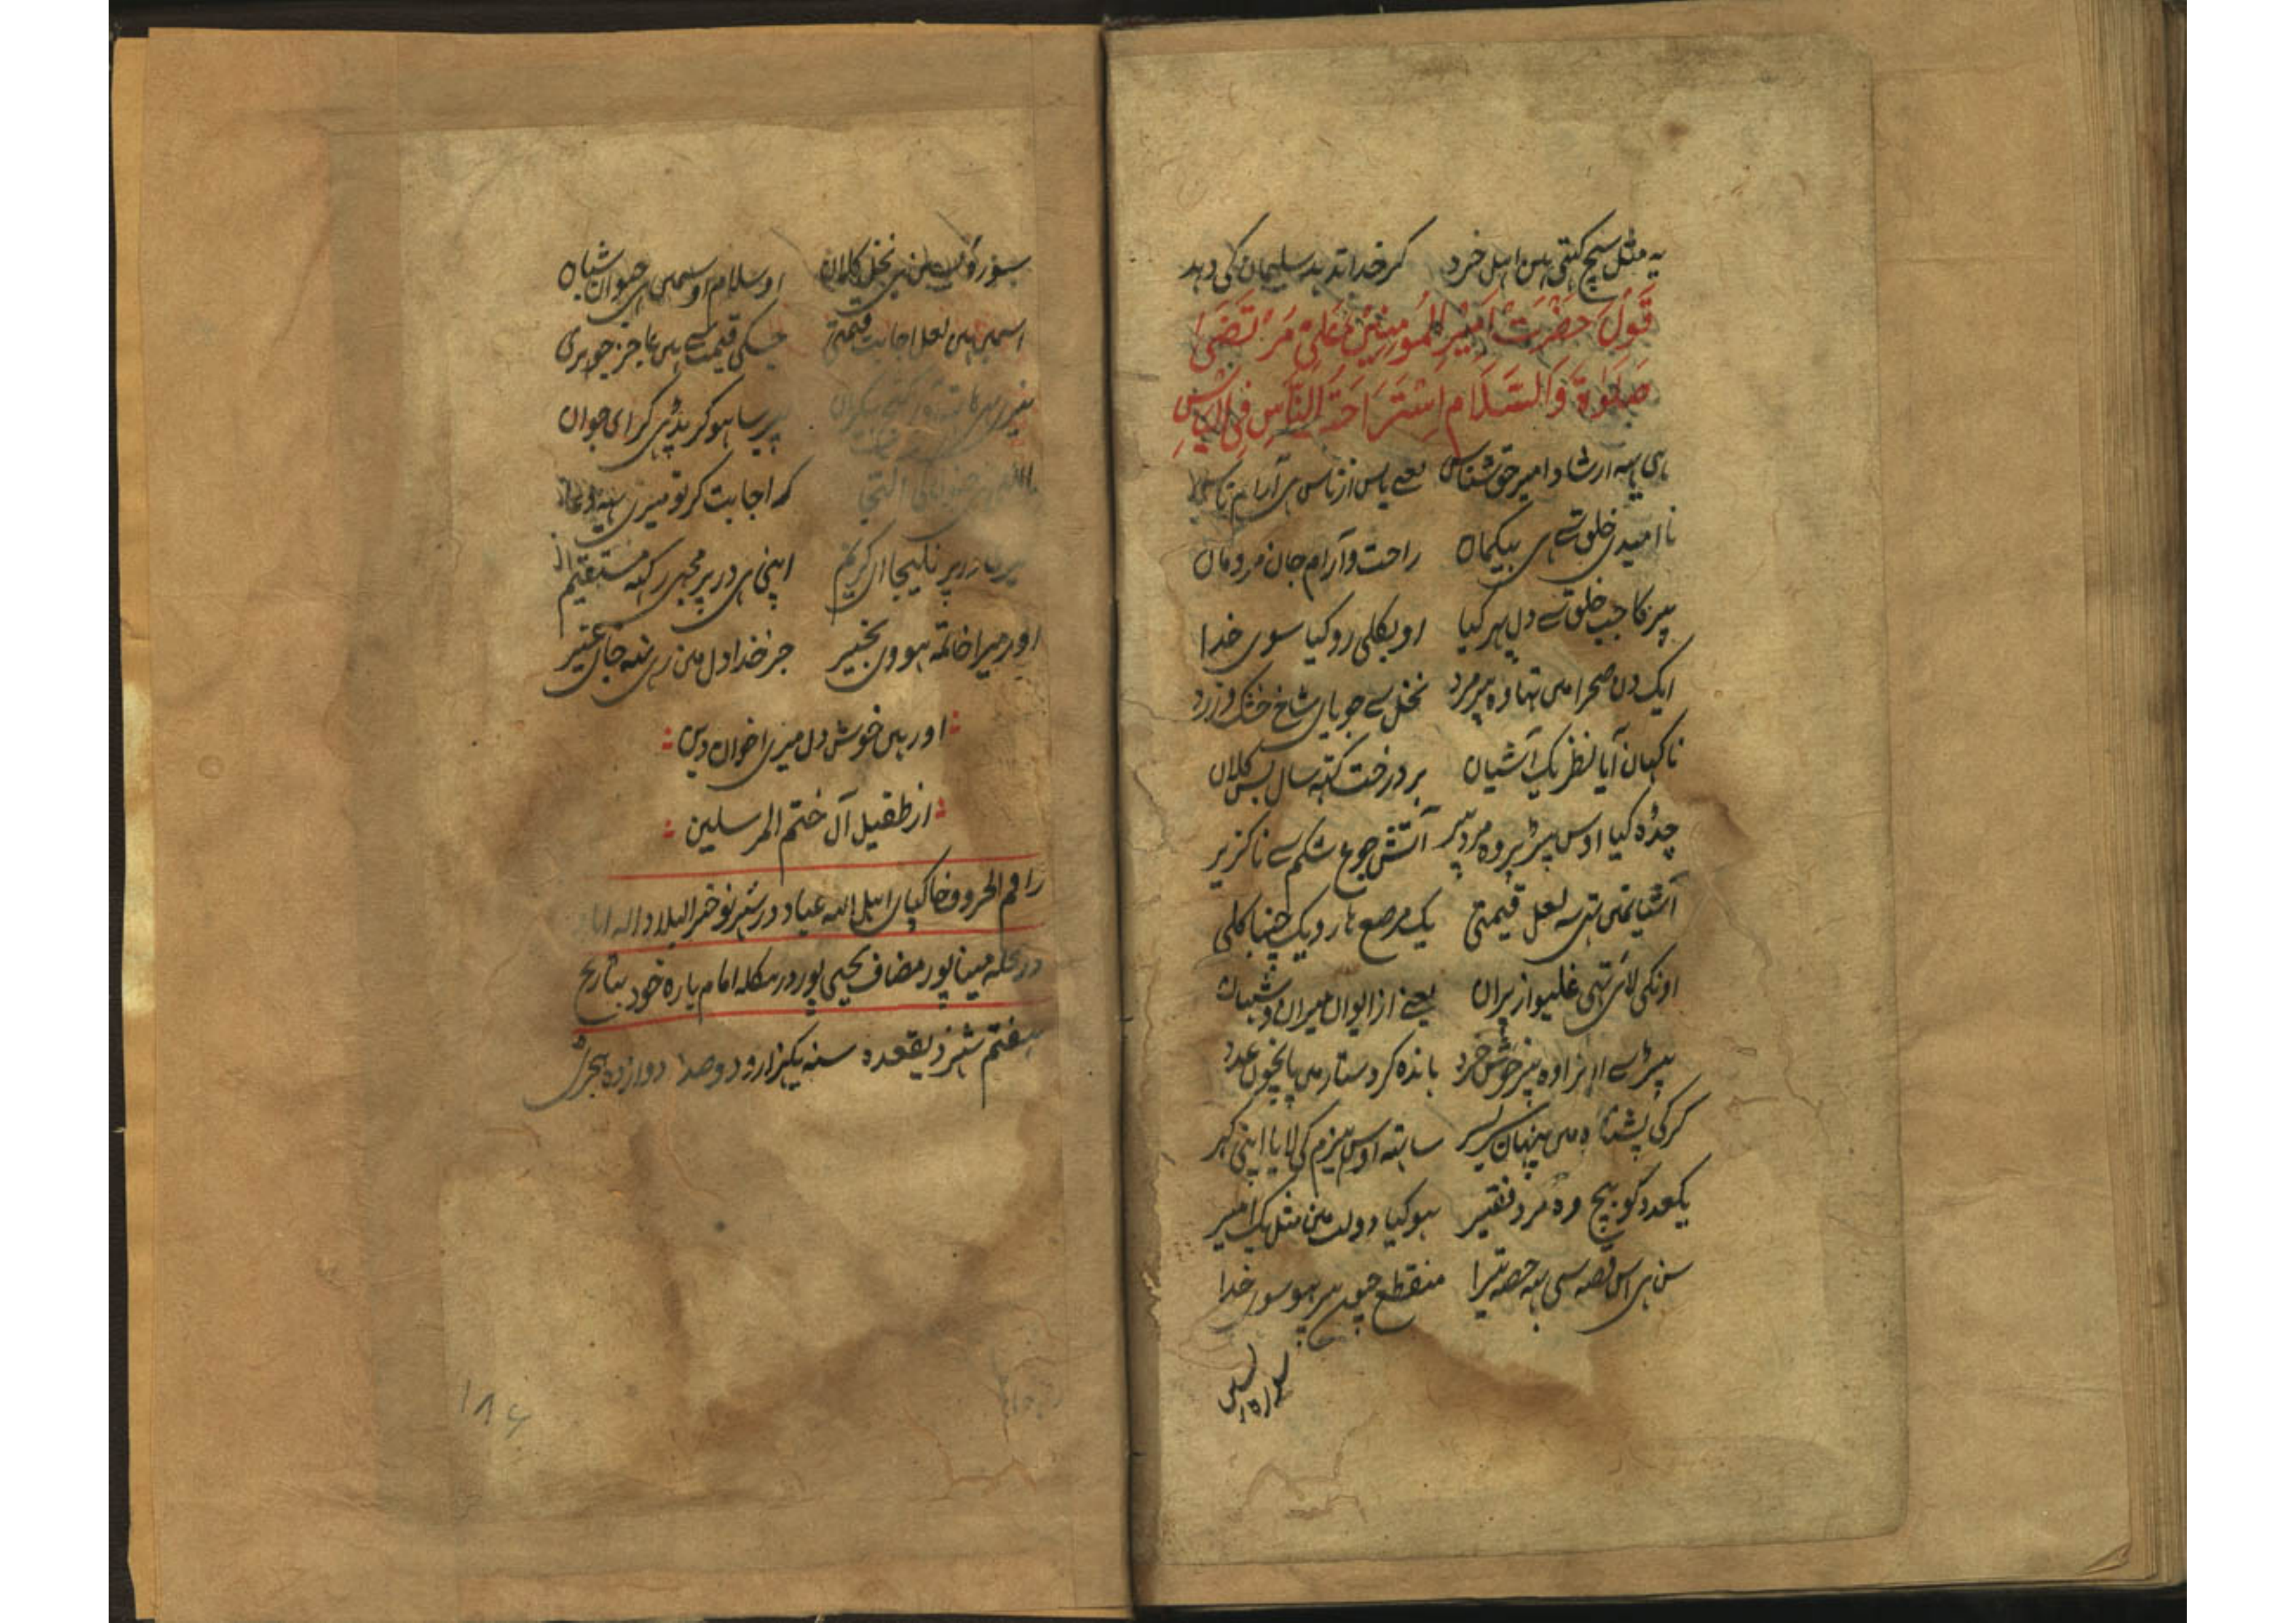 یہ مثل سچ کہتی ہین اہل خرد کر خدا ندہد سلیمان کی دہد
قَولَ حَضْرَت اَمیْرِ المُومِنِیْن عَلیِ مَرْتَضَی
صَلَوٰۃَ وَالسَّلَام اِسْتَرَاحَۃَ النَّاسِ فِی الیاسِ
ہی یہہ ارشاد امیر حق شناس یعنے یاس از ناس ہی آرام
نا امیدی خلق سے ہی بیکمان راحت و آرام جان مردمان
پیر کا جب خلق سے دل پہر کیا او بکلی رو کیا سوی خدا
ایک دن صحرا مین تہا وہ پیر مرد نخل سے جویای شاخ خشک و زرد
ناکہان آیا نظر یک آشیان بر درخت کہنہ سال بس کلان
چڑہ کیا اوس پیڑ پر وہ مرد پیر آتش جوع شکم سے ناکزیر
آشیانمین تہی سہ لعل قیمتی یک مرصع ہار و یک چنپا کلی
اونکی لائی تہی غلیواز پران یعنے از ایوان میران و شہان
پیڑ سے اوترا وہ پیر خوش خرد باندہ کر دستار مین پانچون عدد
کرکی پشتارہ مین پنہان سر بسر ساتہہ اوس ہیزم کی لایا اپنی کہر
یکعدد کو بیچ وہ مرد فقیر ہو کیا دولت مین مثل یک امیر
سن ہی اس قصہ سی یہہ حصہ تیرا منقطع چون پیر ہو سوی خدا
نخل کلان او سلام اوسمین ہی شیان
اسمین ہین لعل اجابت قیمتی جسکی قیمت سے ہین عاجز جوہری
پیر سا ہو کر پڑی کر ای جوان
التجا کہ اجابت کر تو میری یہہ دعا
در پر نلیجا ای کریم اپنی ہی در پر مجہی رکہہ مستقیم
اور میرا خاتمہ ہووی بخیر جز خدا دل مین رہی نہ جای غیر
اور ہین خوش دل میری اخوان دین
از طفیل آل ختم المرسلین
راقم الحروف خاکپای اہل اللہ عباد در شہر نو خضر البلاد الہ اباد
در محلہ مینا پور مضاف یحیی پور در مکلہ امام بارہ خود بتاریخ
ہفتم شہر ذیقعدہ سنہ یکہزار و دو صد دوازدہ ہجری
۱۸۶